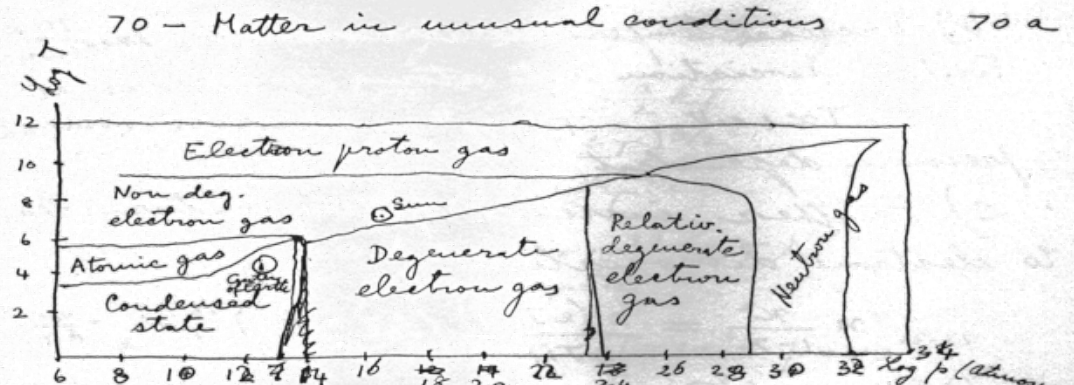 70 – Matter in unusual conditions 70 a
Log T
12
10
8
6
4
2
Electron proton gas
Non deg.
electron gas
Sun
Atomic gas
Condensed
state
Degenerate
electron gas
Relativ.
degenerate
electron
gas
Neutron gas
6 8 10 12 14 16 18 20 22 24 26 28 30 32 34
Log p